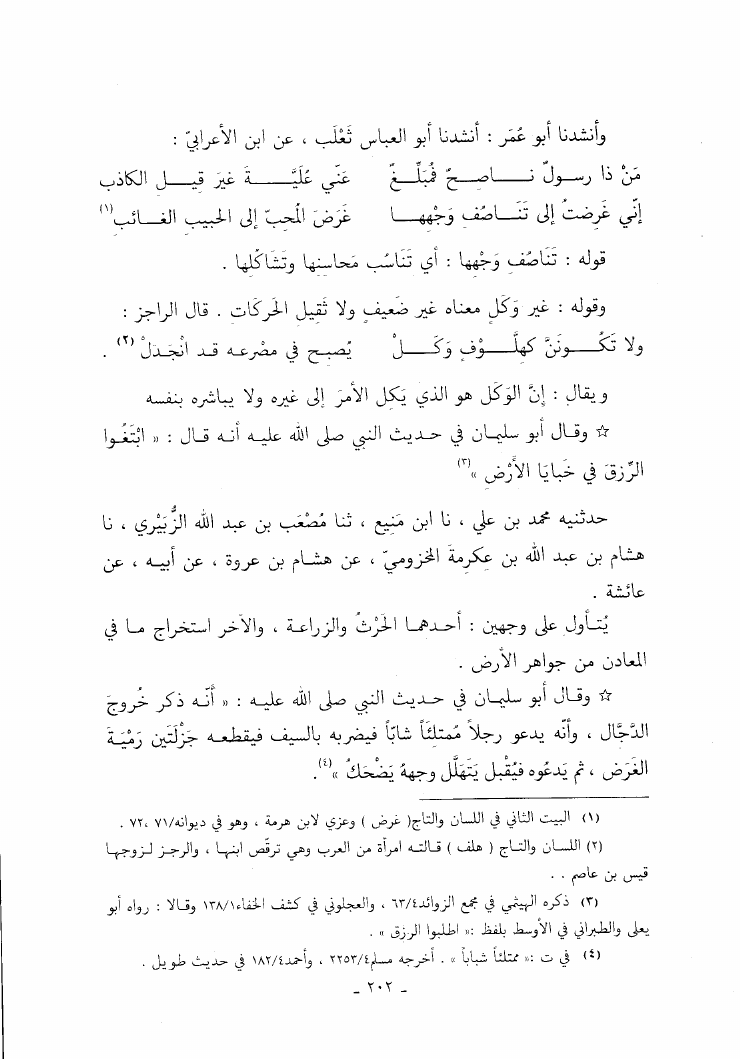 وأنشدنا أبو عُمَر : أنشدنا أبو العباس ثَعْلَب ، عن ابن الأعرابيّ :
مَنْ ذا رسولٌ نــاصحٌ فُمَبَلِّــغٌ عَنّي عُلَيَّــــةَ غيرَ قيــل الكاذب
إنّي غَرِضتُ إلى تَنَــاصُفِ وَجْهِهــا غَرَضَ المُحبّ إلى الحبيب الغــائب(١)
قوله : تَنَاصُف وَجْهها : أي تَنَاسُب مَحاسنِها وتَشَاكُلها .
وقوله : غير وَكَلٍ معناه غير ضَعيفٍ ولا ثَقيل الحَركَات . قال الراجز :
ولا تَكُــونَنَّ كهِلَّــوْفٍ وَكَــلْ يُصبح في مضْرعه قد انْجَدَلْ(٢) .
ويقال : إنَّ الوَكَل هو الذي يَكِل الأمرَ إلى غيره ولا يباشره بنفسه
☆ وقال أبو سليمان في حديث النبي صلى الله عليه أنه قال : « ابْتَغُوا
الرِّزقَ في خَبايَا الأَرْض »(٣)
حدثنيه محمد بن علي ، نا ابن مَنِيع ، ثنا مُصْعَب بن عبد الله الزُّبَيْري ، نا
هشام بن عبد الله بن عِكرمةَ المخزوميّ ، عن هشام بن عروة ، عن أبيه ، عن
عائشة .
يُتَأول على وجهين : أحدهما الحَرْثُ والزراعة ، والآخر استخراج ما في
المعادن من جواهر الأرض .
☆ وقال أبو سليمان في حديث النبي صلى الله عليه : « أنّه ذكر خُروجَ
الدَّجَّال ، وأنّه يدعو رجلاً مُمتلئَاً شابّاً فيضربه بالسيف فيقطعه جَزْلَتَين رَمْيَةَ
الغَرَض ، ثم يَدعُوه فيُقْبل يَتَهلَّل وجههُ يَضْحَكُ »(٤).
(١) البيت الثاني في اللسان والتاج( غرض ) وعزي لابن هرمة ، وهو في ديوانه/٧١ ،٧٢ .
(٢) اللسان والتاج ( هلف ) قالته امرأة من العرب وهي ترقّص ابنها ، والرجز لزوجها
قيس بن عاصم . .
(٣) ذكره الهيثمي في مجمع الزوائد٦٣/٤ ، والعجلوني في كشف الخفاء١٣٨/١ وقالا : رواه أبو
يعلى والطبراني في الأوسط بلفظ :« اطلبوا الرزق » .
(٤) في ت :« ممتلئاً شباباً » . أخرجه مسلم٢٢٥٣/٤ ، وأحمد١٨٢/٤ في حديث طويل .
ـ ٢٠٢ ـ